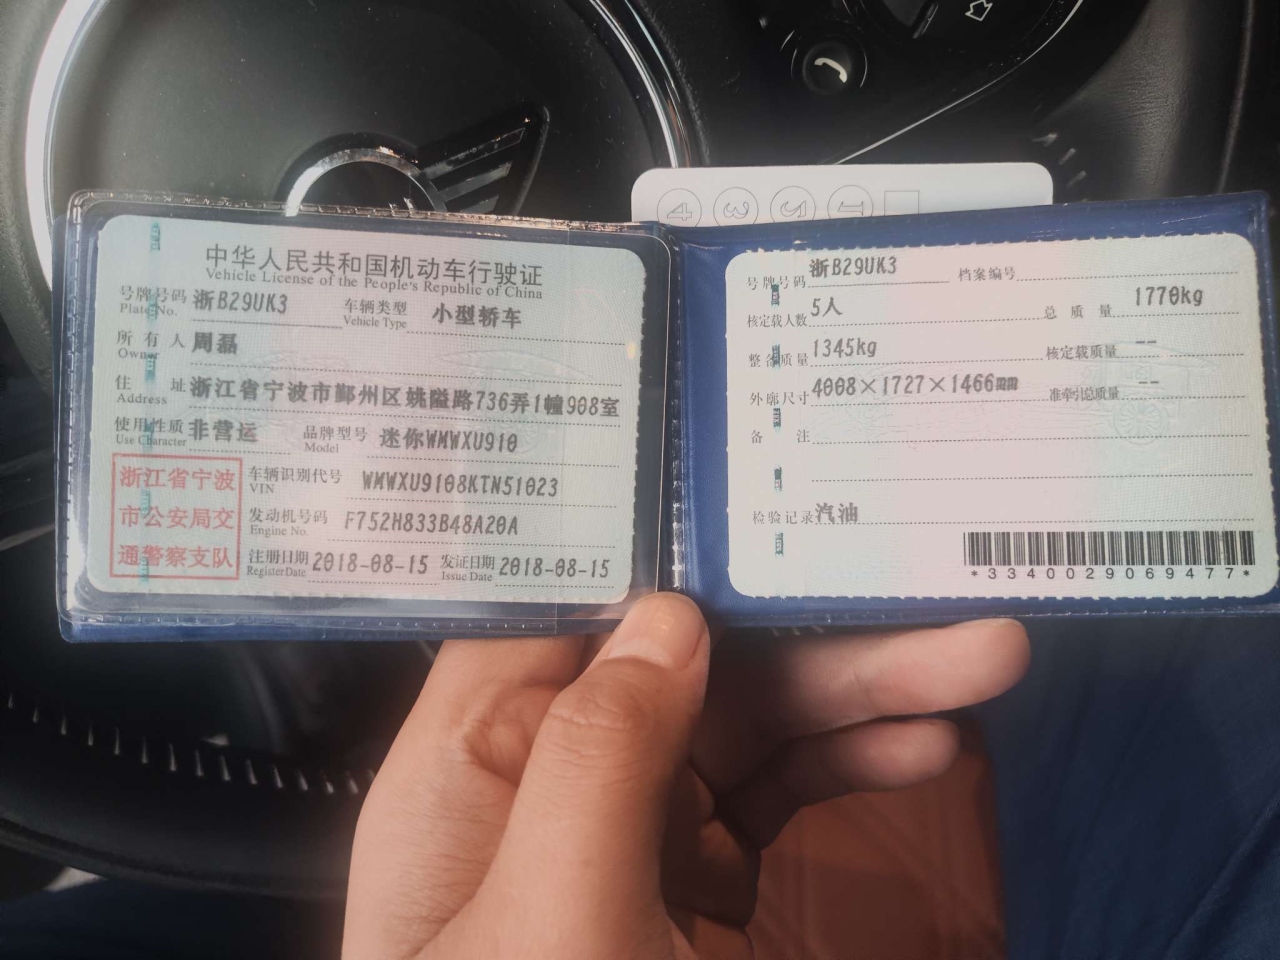 中华人民共和国机动车行驶证
Vehicle License of the People's Republic of China
号牌号码 浙B29UK3 车辆类型 小型轿车
Plate No. Vehicle Type
所有人 周磊
Owner
住址 浙江省宁波市鄞州区姚隘路736弄1幢908室
Address
使用性质 非营运 品牌型号 迷你WMWXU910
Use Character Model
浙江省宁波
市公安局交
通警察支队
车辆识别代号 WMWXU9108KTN51023
VIN
发动机号码 F752H833B48A20A
Engine No.
注册日期 2018-08-15 发证日期 2018-08-15
Register Date Issue Date
4 3 2 1
号牌号码 浙B29UK3 档案编号
核定载人数 5人 总质量 1770kg
整备质量 1345kg 核定载质量 --
外廓尺寸 4008×1727×1466mm 准牵引总质量 --
备注
检验记录 汽油
*3340029069477*